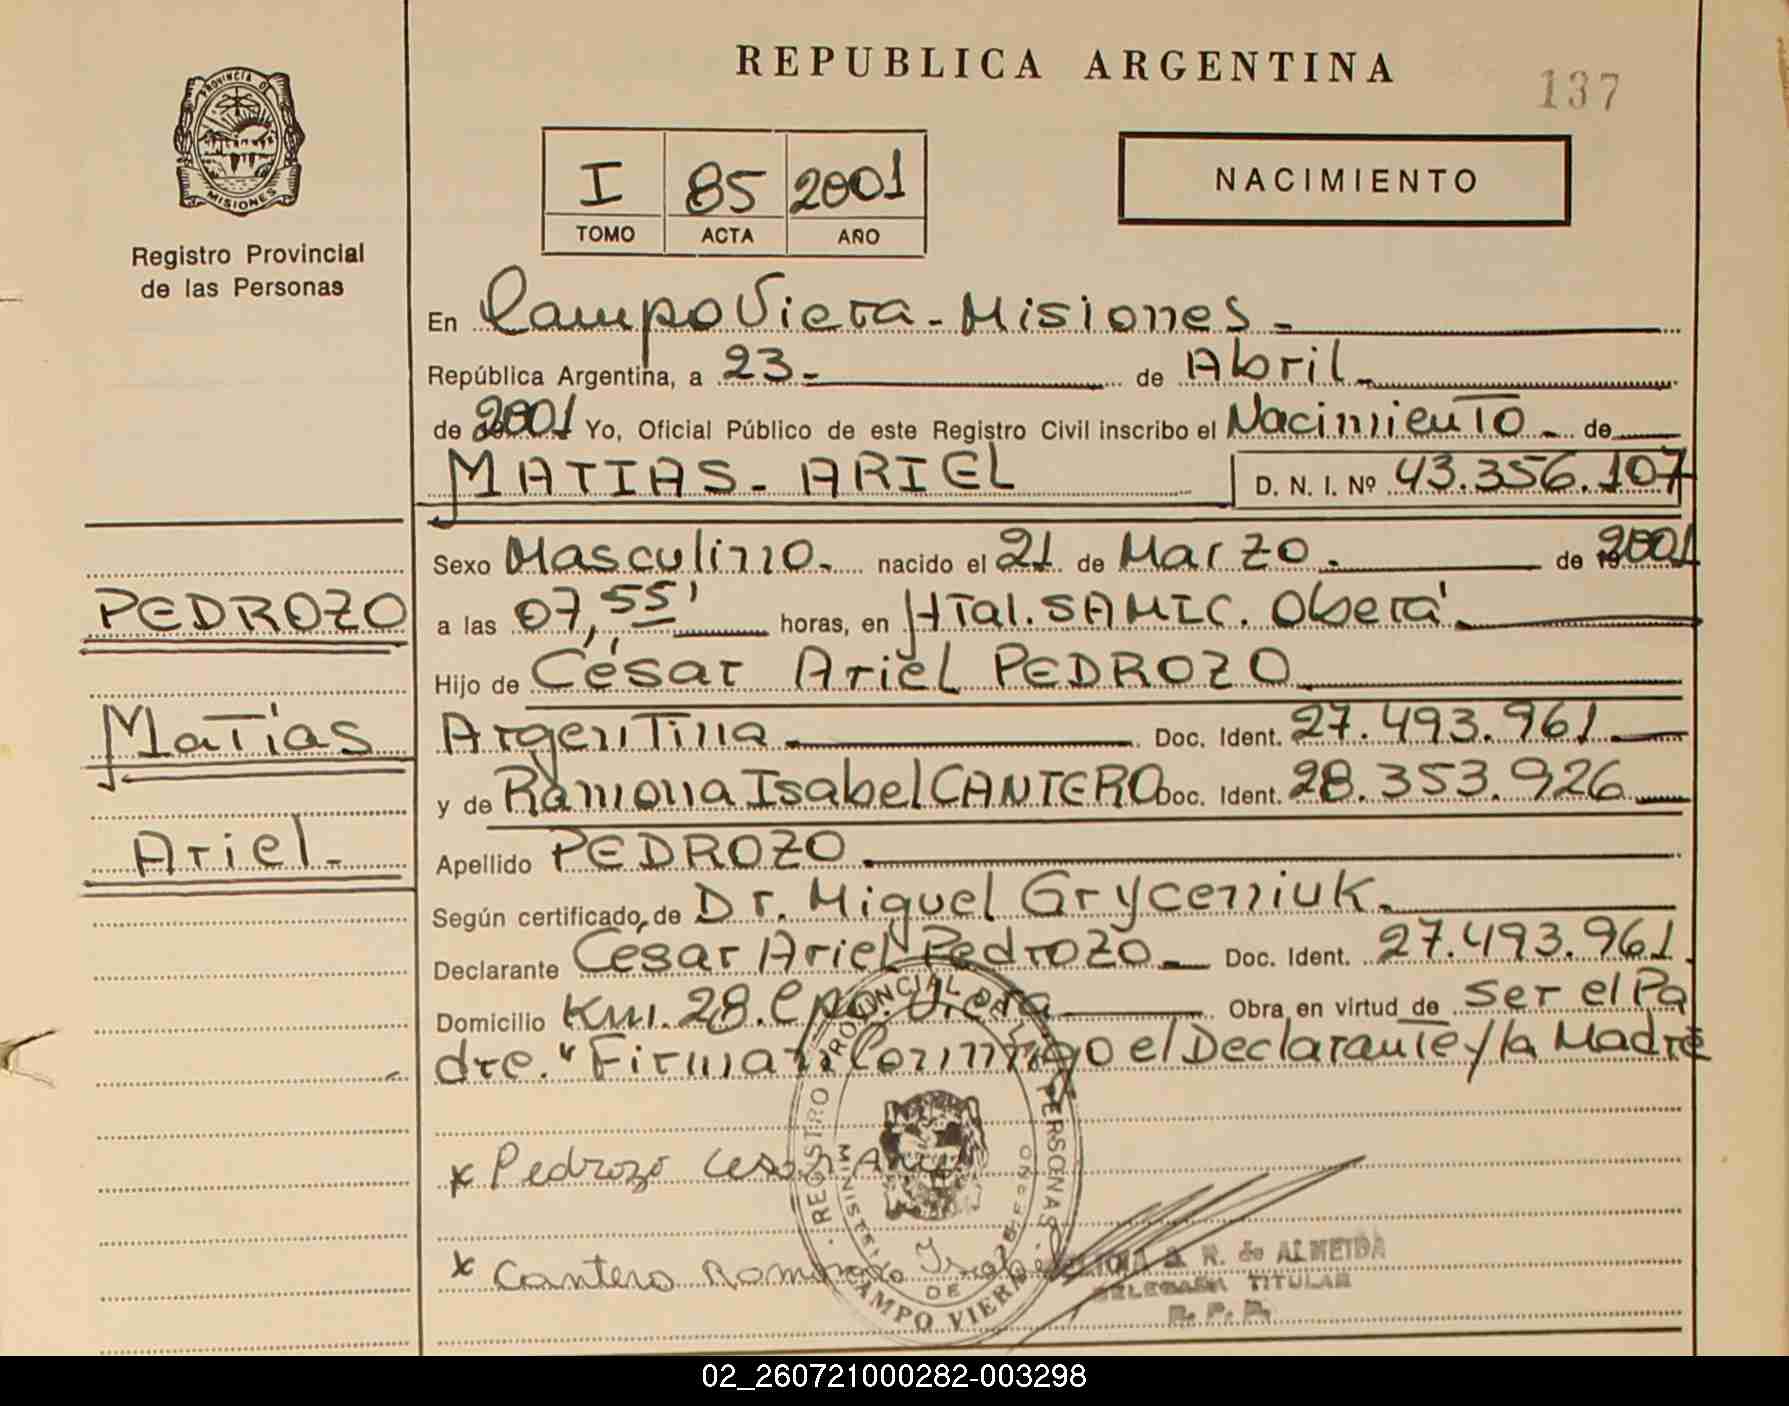 REPUBLICA ARGENTINA
137
PROVINCIA D
MISIONES
Registro Provincial
de las Personas
I 85 2001
TOMO ACTA AÑO
NACIMIENTO
En Campo Viera - Misiones -
República Argentina, a 23 - de Abril -
de 2001 Yo, Oficial Público de este Registro Civil inscribo el Nacimiento - de
MATIAS - ARIEL D. N. I. Nº 43.356.107
Sexo Masculino - nacido el 21 de Marzo - de 2001
PEDROZO
a las 07,55' horas, en Htal. SAMIC. Oberá
Hijo de César Ariel PEDROZO
Matías
Argentina Doc. Ident. 27.493.961
y de Ramona Isabel CANTERO Doc. Ident. 28.353.926
Ariel -
Apellido PEDROZO
Según certificado de Dr. Miguel Gryceniuk -
Declarante César Ariel Pedrozo - Doc. Ident. 27.493.961
Domicilio Km. 28. Cpo. Viera Obra en virtud de ser el Pa
dre. " Firman Conmigo el Declarante y la Madre
x Pedrozo Cesar Ariel
x Cantero Ramona Isabel
REGISTRO PROVINCIAL DE LAS PERSONAS
MINISTERIO DE GOBIERNO
DE
CAMPO VIERA
R. de ALMEIDA
DELEGADA TITULAR
R. P. P.
02_260721000282-003298